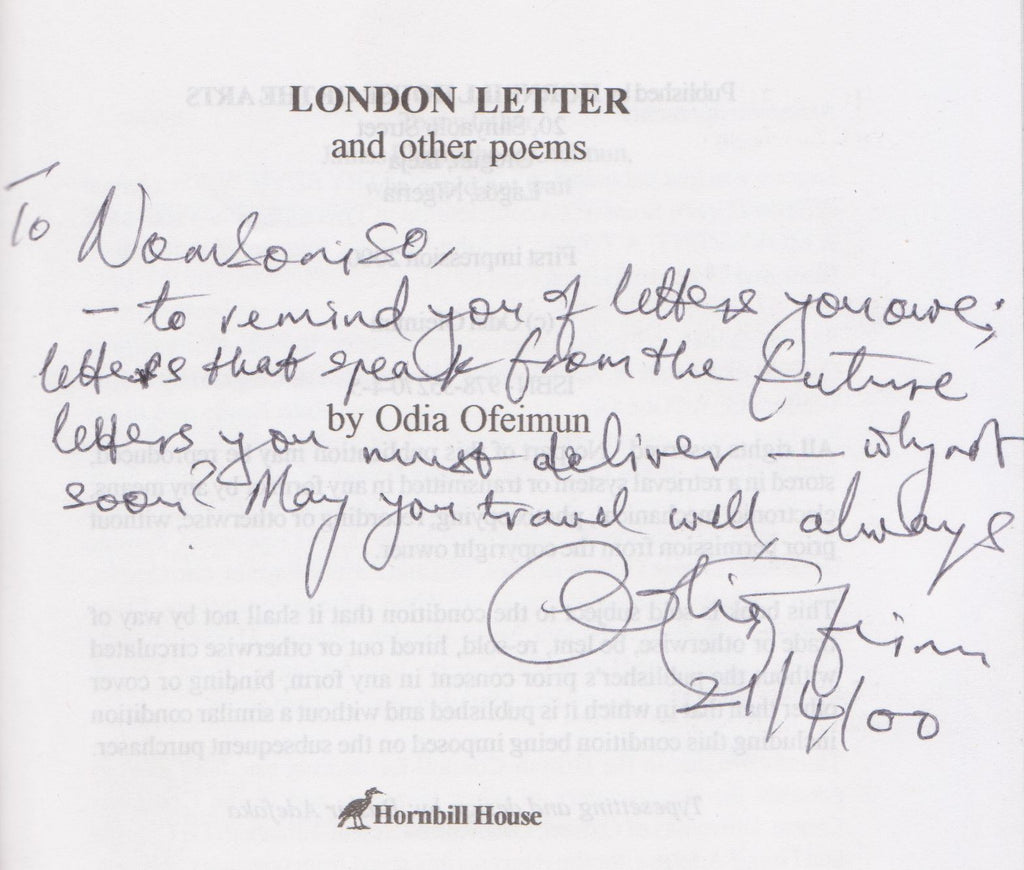 LONDON LETTER
and other poems
To
— to remind you of letters you owe;
letters that speak from the future
by Odia Ofeimun
letters you must deliver — why not
soon? May you travel well, always
21/4/00
Hornbill House